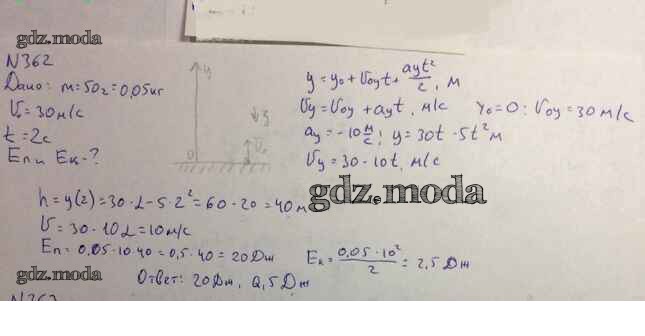 gdz.moda
N362
Дано: m=50г=0,05кг
V₀=30м/с
t=2с
Eп и Eк-?
y
g
V₀
0
y=y₀+V₀yt+ayt²/2, м
Vy=V₀y+ayt, м/с y₀=0; V₀y=30м/с
ay=-10 м/с; y=30t-5t² м
Vy=30-10t, м/с
gdz.moda
h=y(2)=30·2-5·2²=60-20=40м
V=30-10·2=10м/с
Eп=0,05·10·40=0,5·40=20Дж Eк=0,05·10²/2=2,5Дж
gdz.moda
Ответ: 20Дж, 2,5Дж
N363